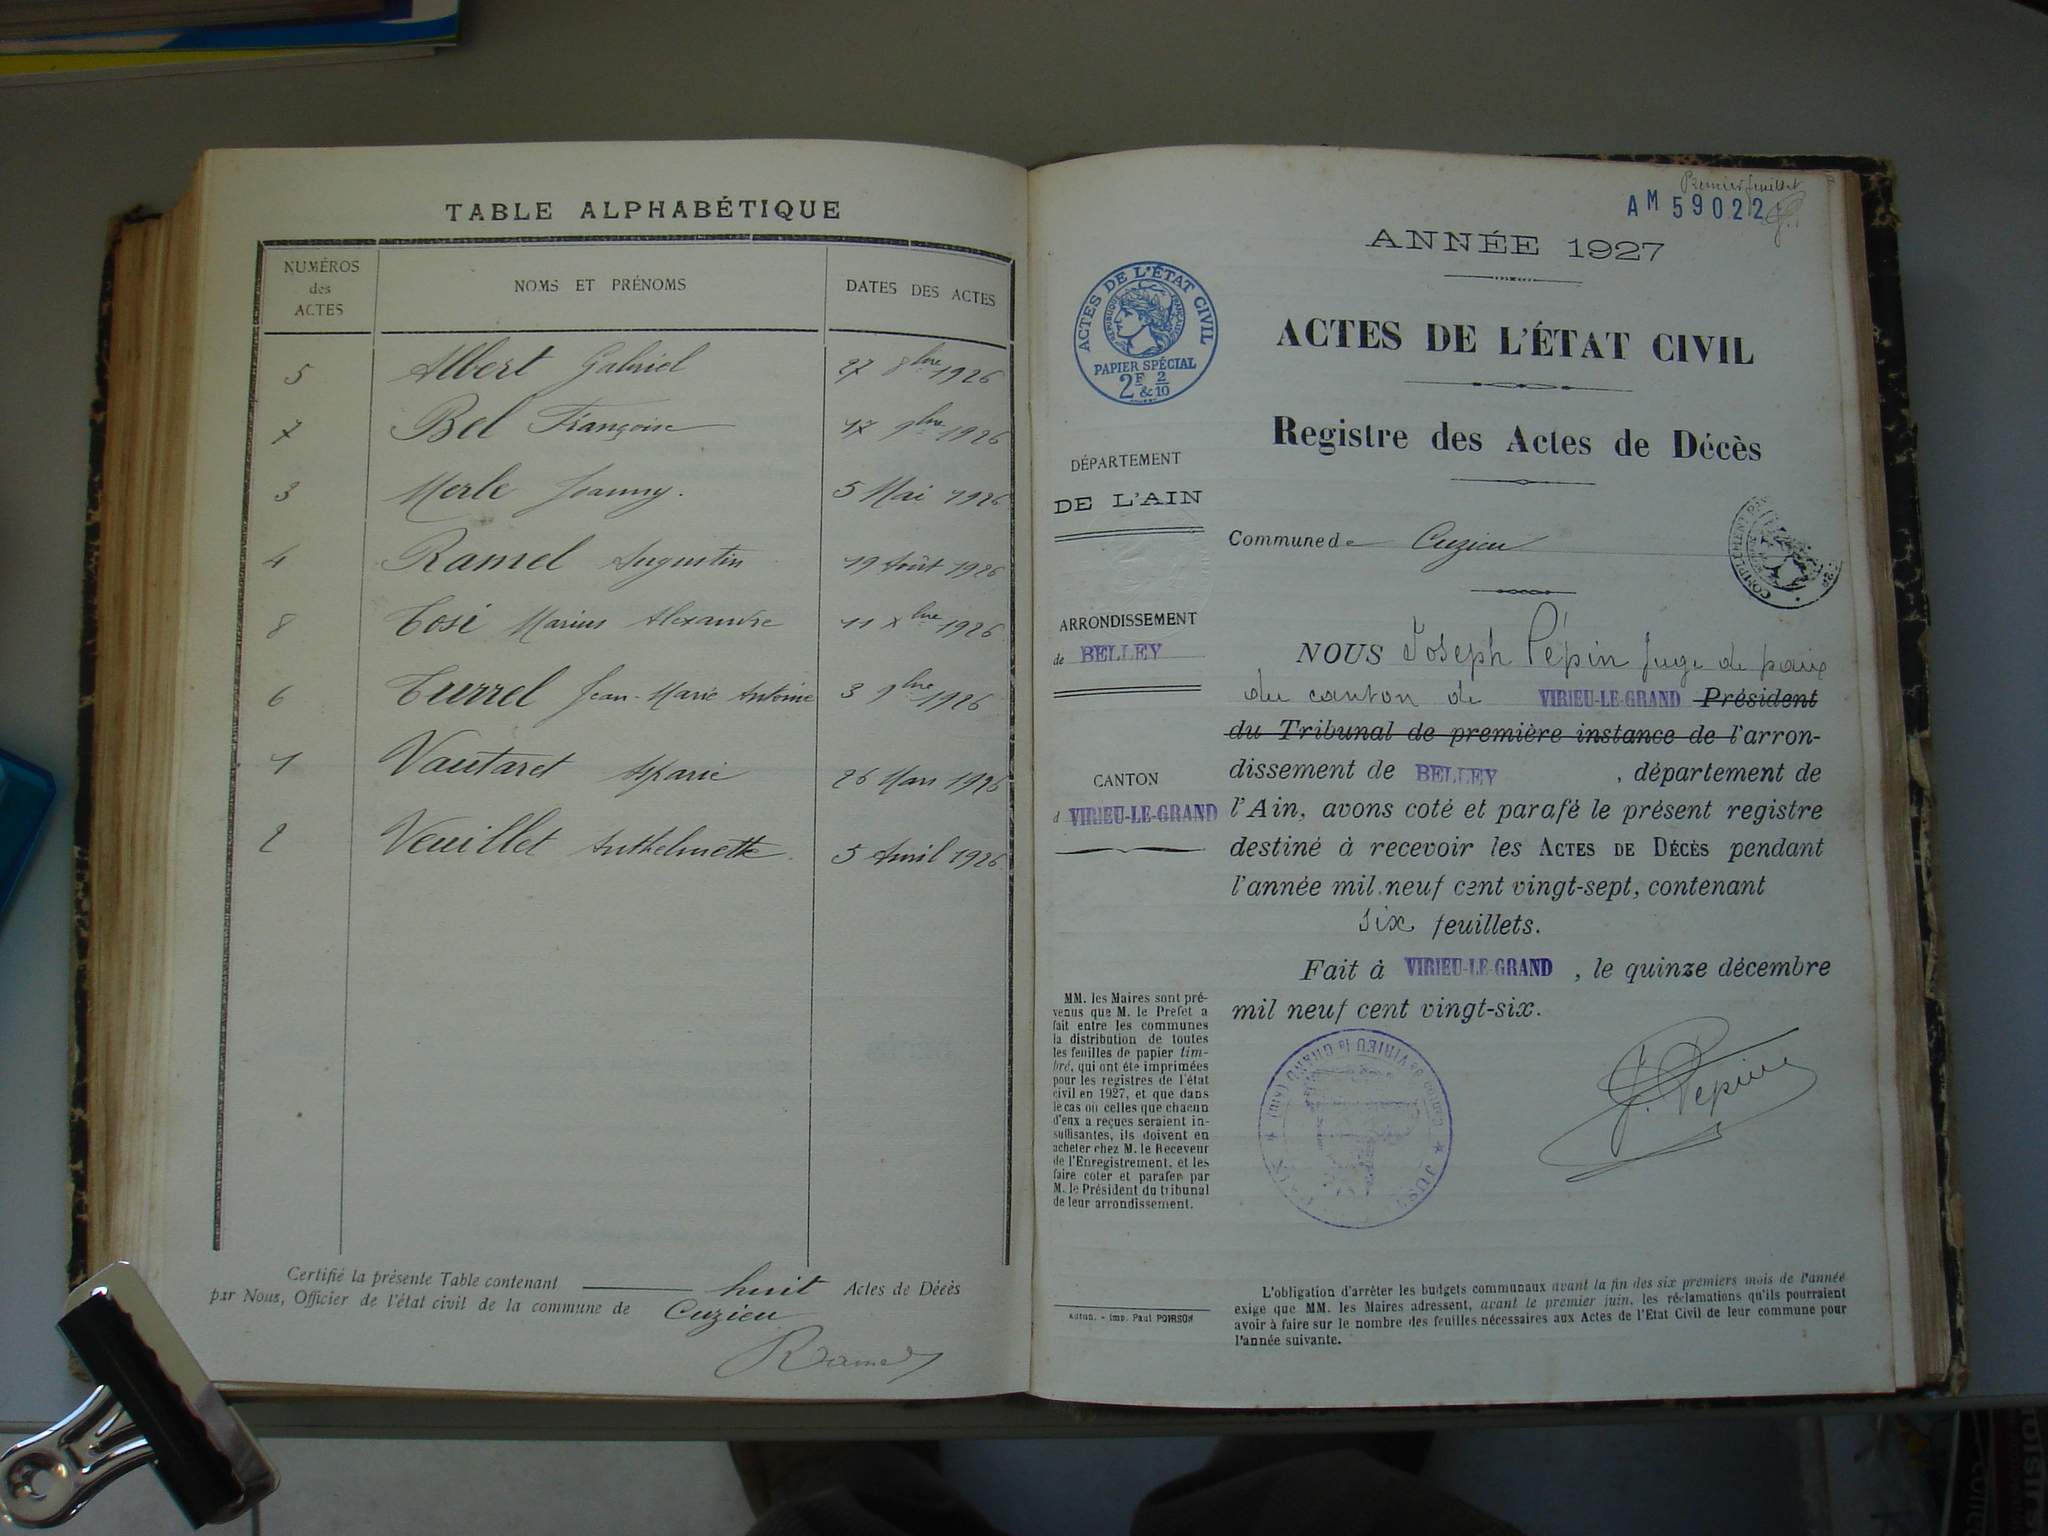 TABLE ALPHABÉTIQUE
NUMÉROS des ACTES
NOMS ET PRÉNOMS
DATES DES ACTES
5 Albert Gabriel 27 8bre 1926
7 Bel Françoise 17 9bre 1926
3 Merle Joanny. 5 Mai 1926
4 Ramel Augustin 19 Août 1926
8 Cosi Marius Alexandre 11 Xbre 1926
6 Currel Jean-Marie Antoine 3 9bre 1926
1 Vautaret Aspasie 26 Mars 1926
2 Veuillet Anthelmette 5 Avril 1926
Certifié la présente Table contenant huit Actes de Décès
par Nous, Officier de l'état civil de la commune de Cuzieu
Ramel
Premier feuillet
AM 59022
ANNÉE 1927
ACTES DE L'ÉTAT CIVIL
RÉPUBLIQUE FRANÇAISE
PAPIER SPÉCIAL
2F & 2/10
ACTES DE L'ÉTAT CIVIL
Registre des Actes de Décès
DÉPARTEMENT
DE L'AIN
Commune de Cuzieu
ARRONDISSEMENT
de BELLEY
CANTON
d VIRIEU-LE-GRAND
NOUS Joseph Pépin Juge de paix
du canton de VIRIEU-LE-GRAND Président
du Tribunal de première instance de l'arron-
dissement de BELLEY , département de
l'Ain, avons coté et parafé le présent registre
destiné à recevoir les ACTES DE DÉCÈS pendant
l'année mil neuf cent vingt-sept, contenant
six feuillets.
Fait à VIRIEU-LE-GRAND , le quinze décembre
mil neuf cent vingt-six.
J. Pépin
MM. les Maires sont pré-
venus que M. le Prefet a
fait entre les communes
la distribution de toutes
les feuilles de papier tim-
bré, qui ont été imprimées
pour les registres de l'état
civil en 1927, et que dans
le cas où celles que chacun
d'eux a reçues seraient in-
suffisantes, ils doivent en
acheter chez M. le Receveur
de l'Enregistrement, et les
faire coter et parafer par
M. le Président du tribunal
de leur arrondissement.
Autun. - Imp. Paul POIRSON
L'obligation d'arrêter les budgets communaux avant la fin des six premiers mois de l'année
exige que MM. les Maires adressent, avant le premier juin, les réclamations qu'ils pourraient
avoir à faire sur le nombre des feuilles nécessaires aux Actes de l'Etat Civil de leur commune pour
l'année suivante.